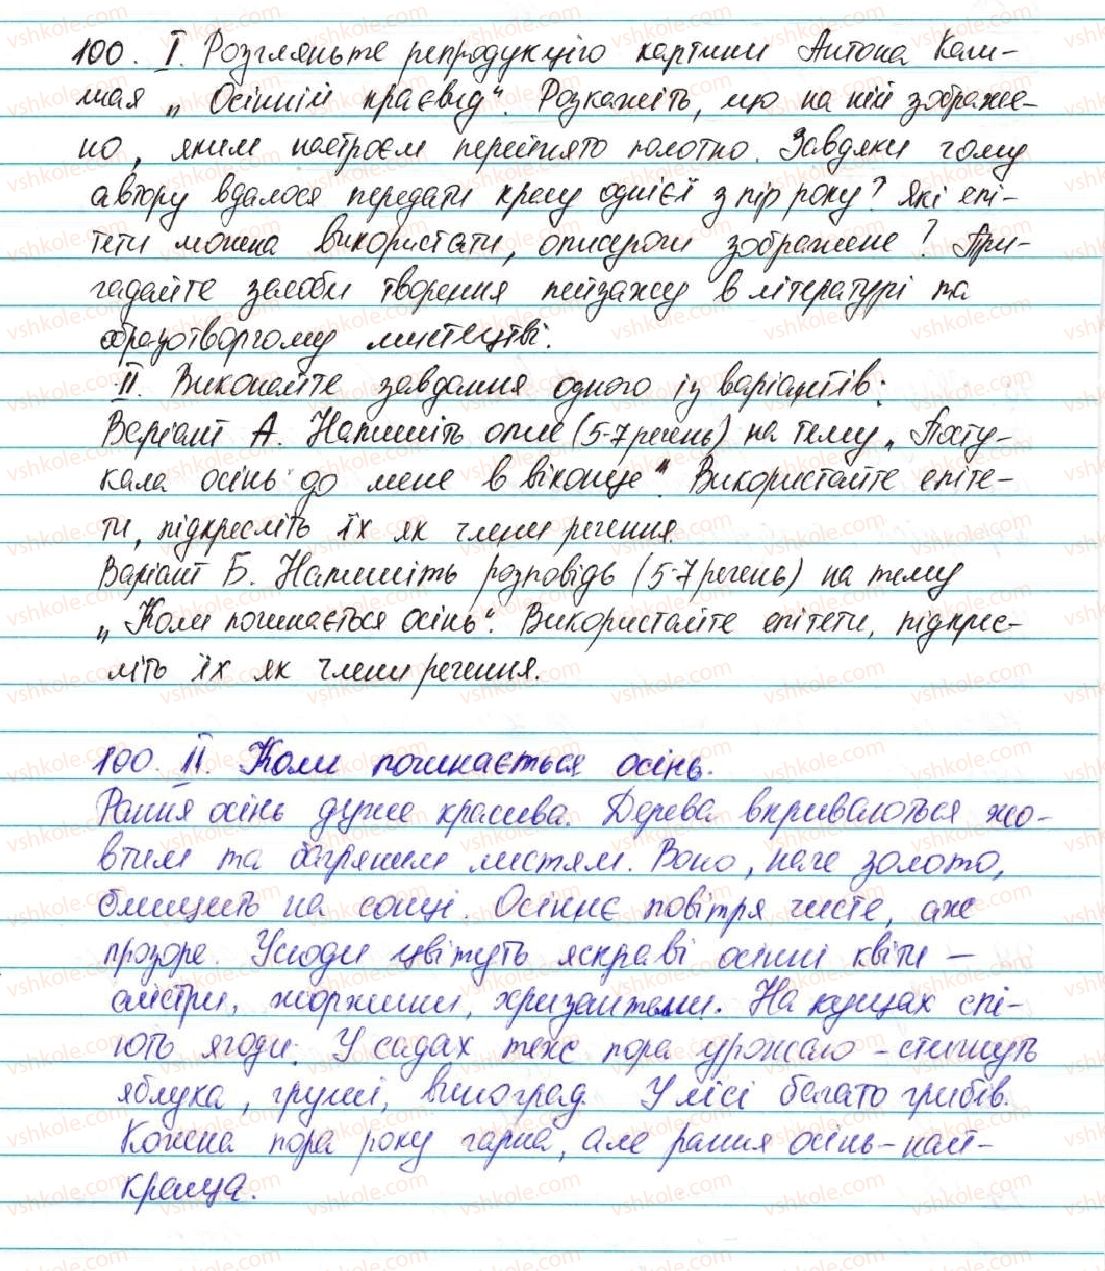 100. I. Розгляньте репродукцію картини Антона Каш-
шая „Осінній краєвид". Розкажіть, що на ній зображе-
но, яким настроєм перейнято полотно. Завдяки чому
автору вдалося передати красу однієї з пір року? Які епі-
тети можна використати, описуючи зображене? При-
гадайте засоби творення пейзажу в літературі та
образотворчому мистецтві.
II. Виконайте завдання одного із варіантів:
Варіант А. Напишіть опис (5-7 речень) на тему „Посту-
кала осінь до мене в віконце". Використайте епіте-
ти, підкресліть їх як члени речення.
Варіант Б. Напишіть розповідь (5-7 речень) на тему
„Коли починається осінь". Використайте епітети, підкрес-
літь їх як члени речення.
100. II. Коли починається осінь.
Рання осінь дуже красива. Дерева вкриваються жо-
втим та багряним листям. Воно, наче золото,
блищить на сонці. Осіннє повітря чисте, аж
прозоре. Усюди цвітуть яскраві осінні квіти –
айстри, жоржини, хризантеми. На кущах спі-
ють ягоди. У садах теж пора урожаю - стигнуть
яблука, груші, виноград. У лісі багато грибів.
Кожна пора року гарна, але рання осінь - най-
краща.